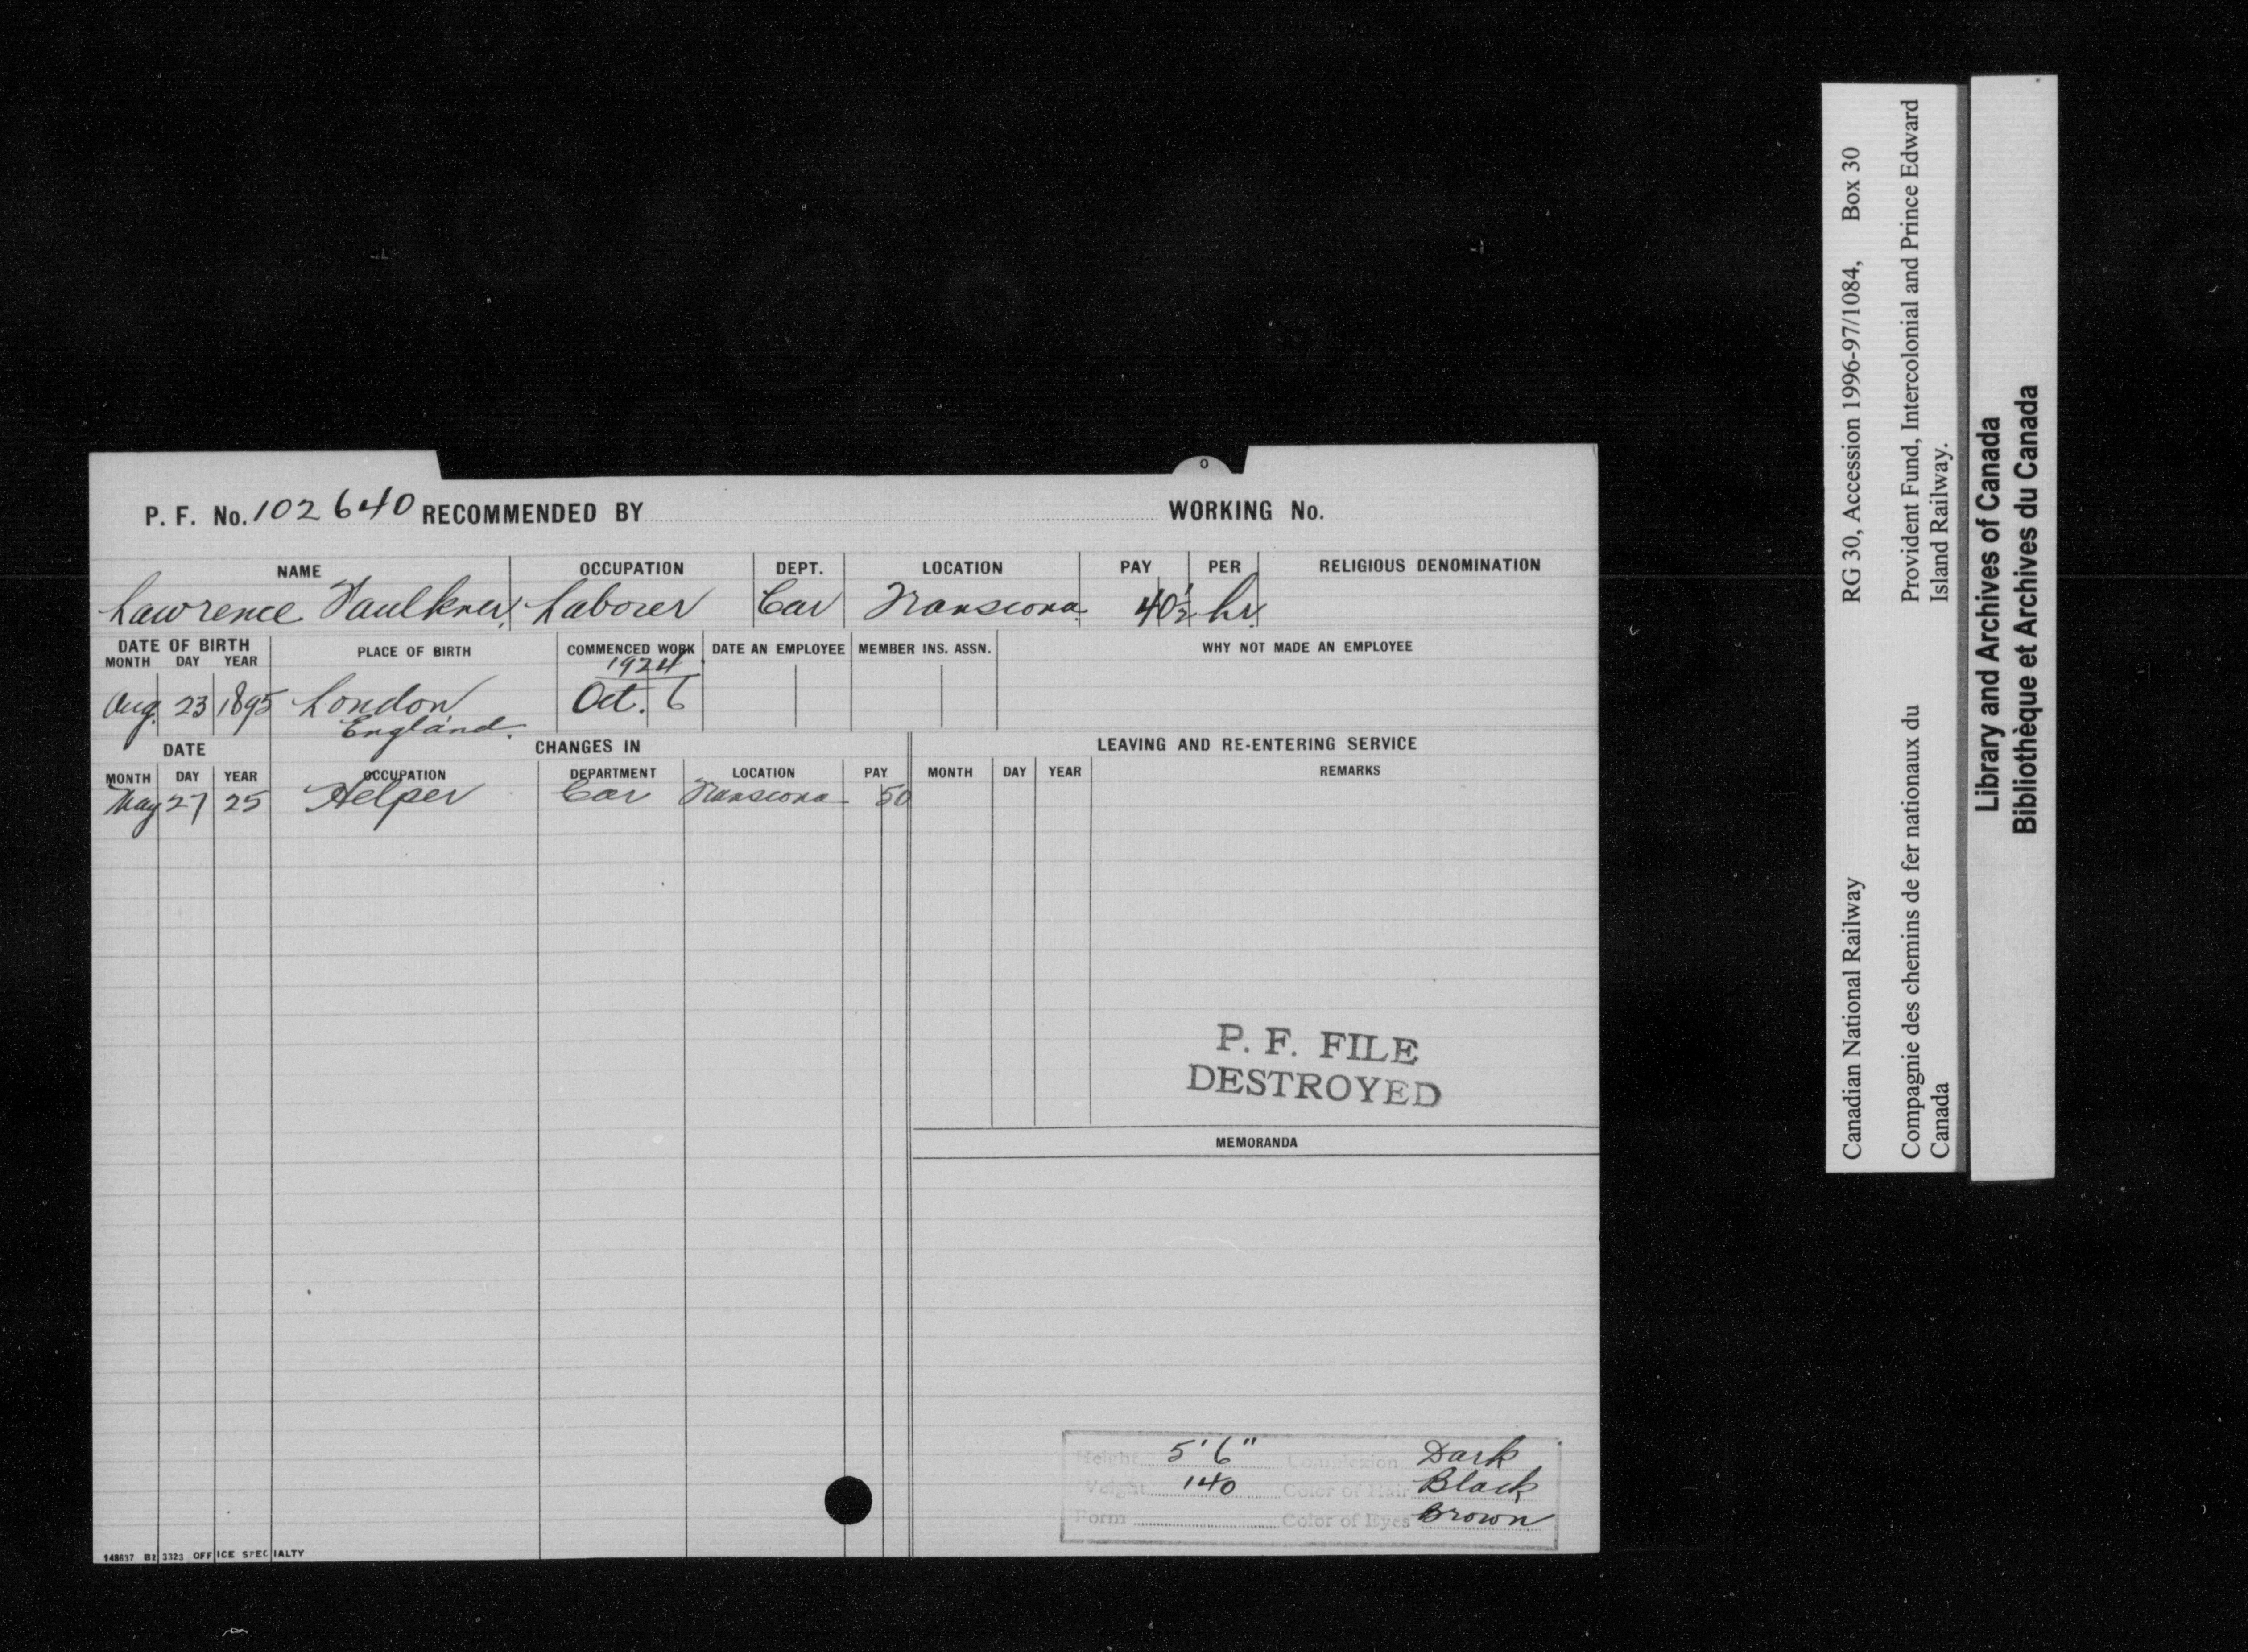 P. F. No. 102640 RECOMMENDED BY WORKING No.
NAME OCCUPATION DEPT. LOCATION PAY PER RELIGIOUS DENOMINATION
Lawrence Faulkner. Laborer Car Transcona. 40½ hr.
DATE OF BIRTH PLACE OF BIRTH COMMENCED WORK DATE AN EMPLOYEE MEMBER INS. ASSN. WHY NOT MADE AN EMPLOYEE
MONTH DAY YEAR
1924
Aug. 23 1895 London Oct. 6
England.
DATE CHANGES IN LEAVING AND RE-ENTERING SERVICE
MONTH DAY YEAR OCCUPATION DEPARTMENT LOCATION PAY MONTH DAY YEAR REMARKS
May 27 25 Helper Car Transcona 50
P. F. FILE
DESTROYED
MEMORANDA
Height 5'6" Complexion Dark
Weight 140 Color of Hair Black
Form Color of Eyes Brown
148637 B2 3323 OFFICE SPECIALTY
Canadian National Railway RG 30, Accession 1996-97/1084, Box 30
Compagnie des chemins de fer nationaux du Provident Fund, Intercolonial and Prince Edward
Canada Island Railway.
Library and Archives of Canada
Bibliothèque et Archives du Canada